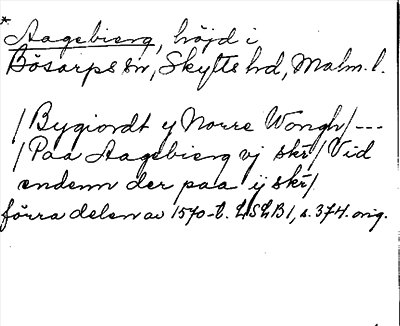 * Aagebierg, höjd i
Bösarps sn, Skytts hd, Malm. l.
/Bygiordt y Norre Wongh/---
/Paa Aagebierg vj skr/ Vid
endenn der paa ij skr/
förra delen av 1570-t. LSLB1, s. 374. orig.